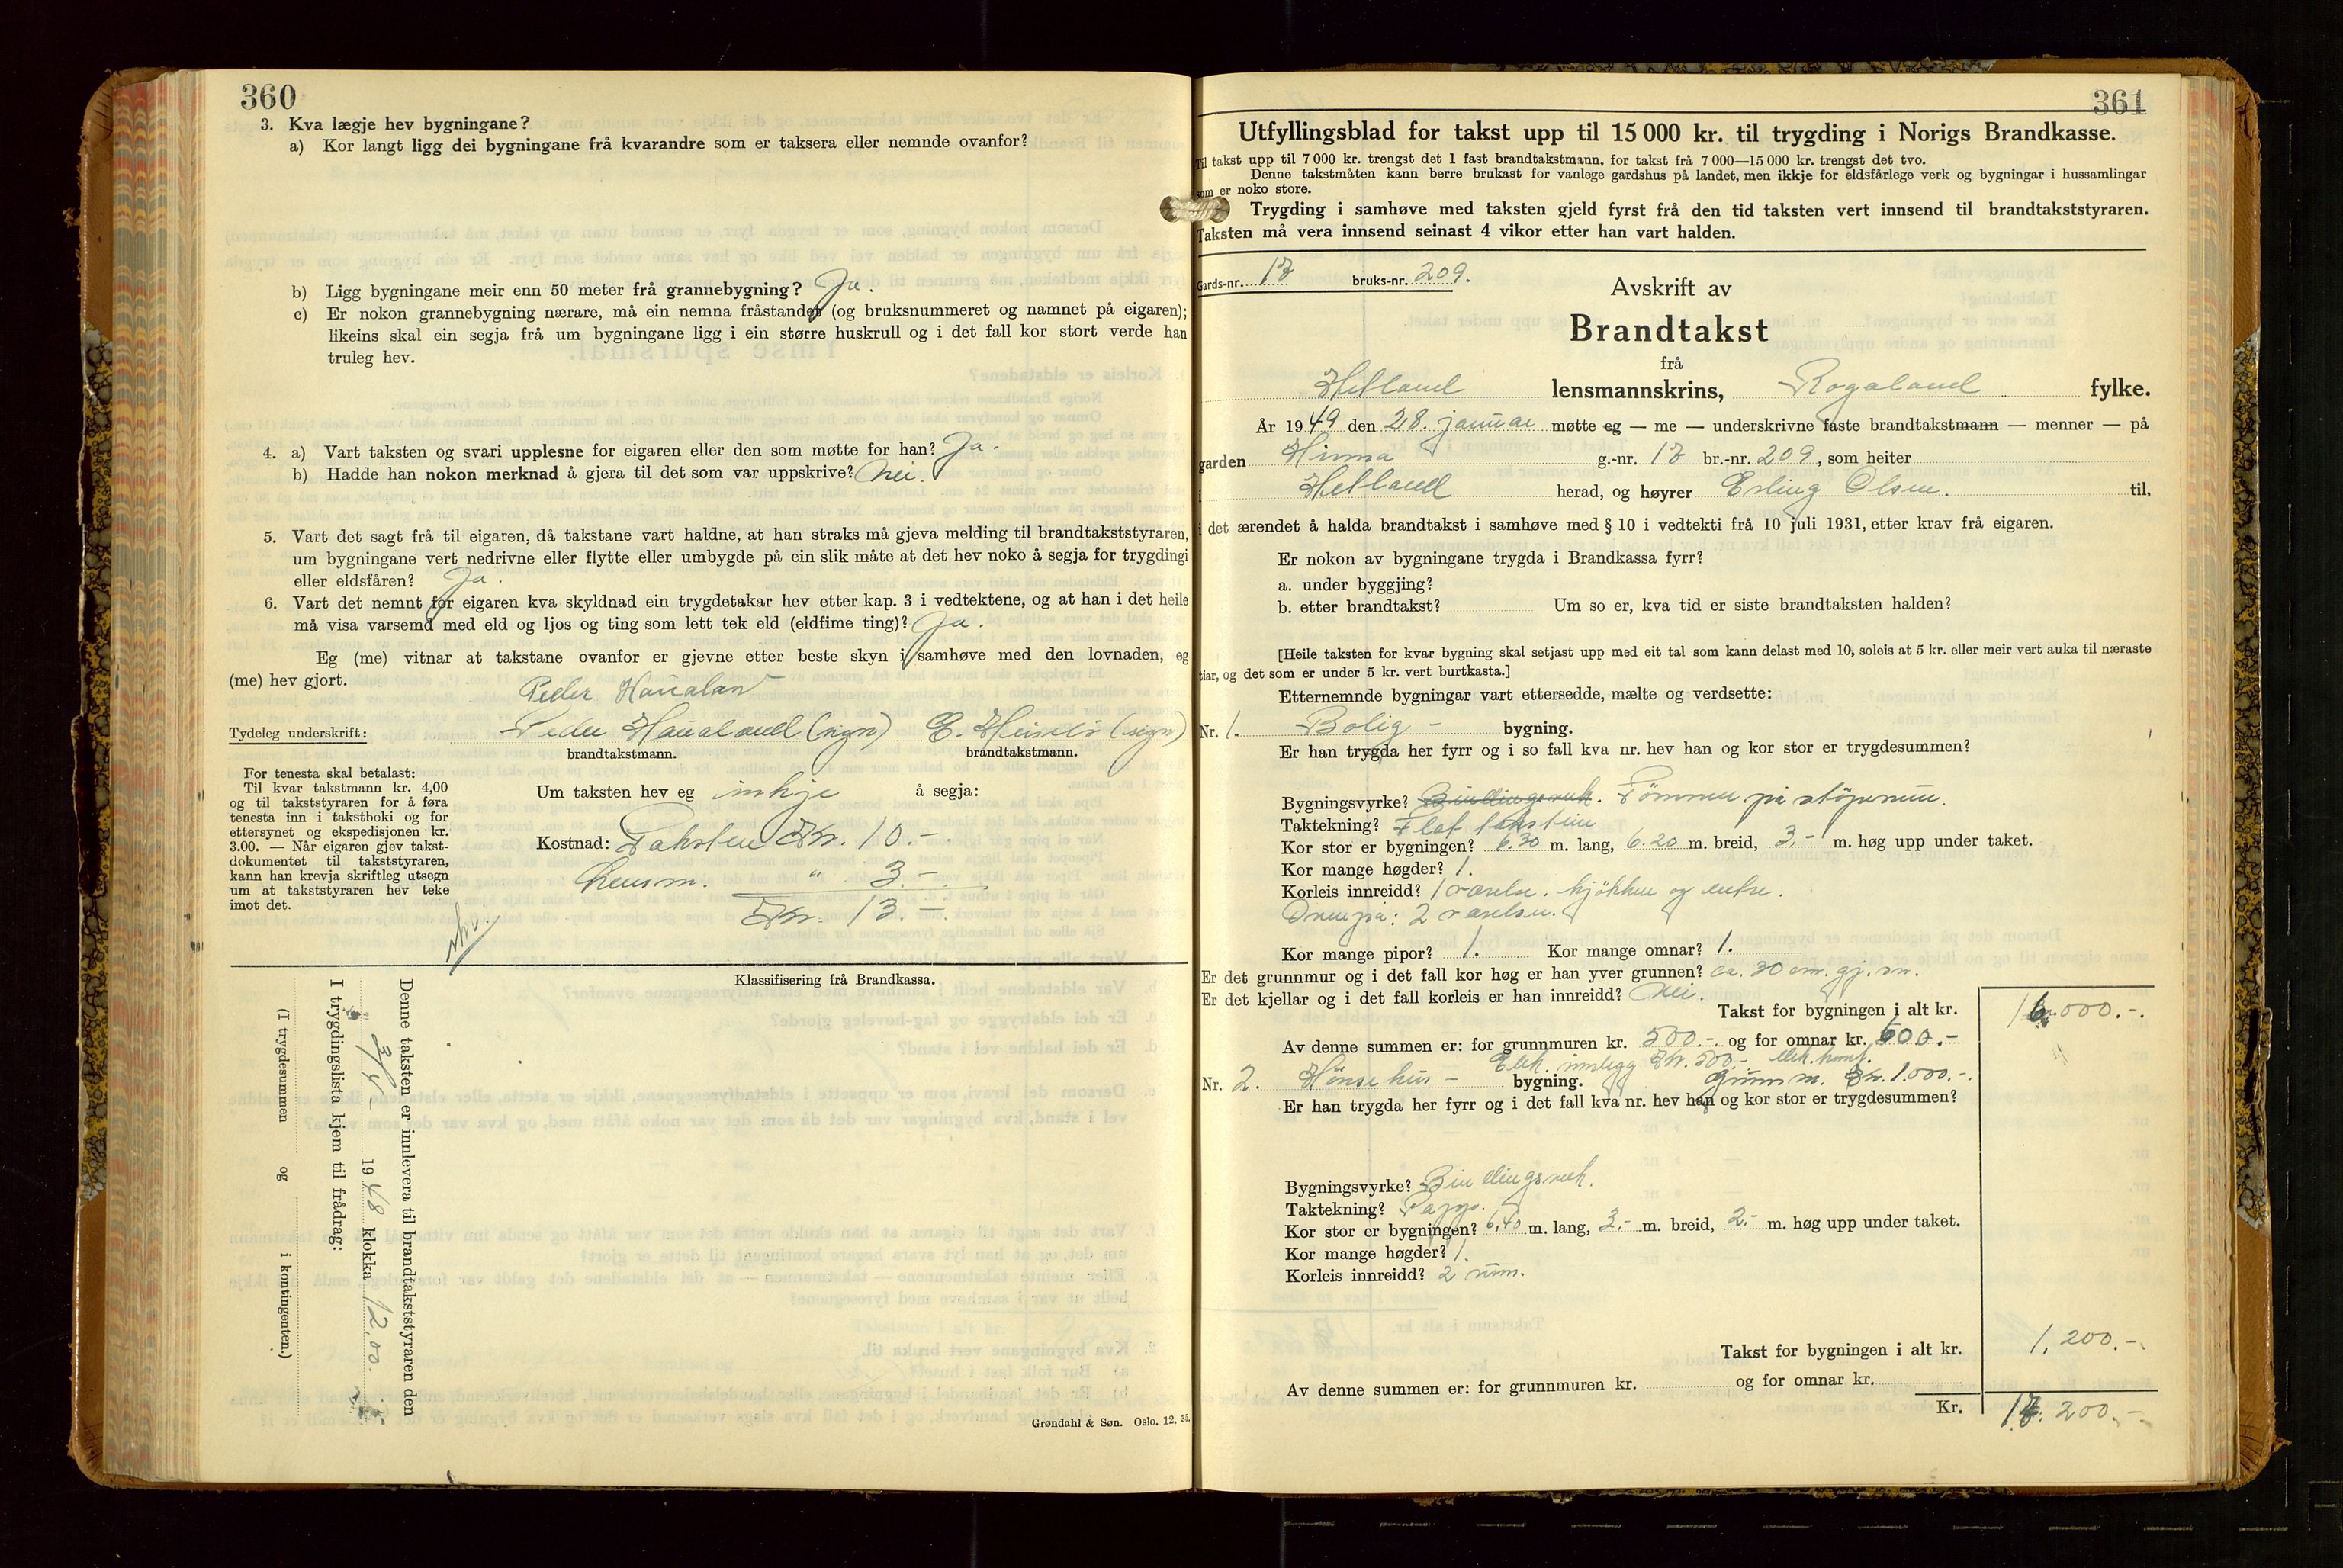 360
3. Kva lægje hev bygningane?
a) Kor langt ligg dei bygningane frå kvarandre som er taksera eller nemnde ovanfor?
b) Ligg bygningane meir enn 50 meter frå grannebygning? Ja.
c) Er nokon grannebygning nærare, må ein nemna fråstandet (og bruksnummeret og namnet på eigaren);
likeins skal ein segja frå um bygningane ligg i ein større huskrull og i det fall kor stort verde han
truleg hev.
4. a) Vart taksten og svari upplesne for eigaren eller den som møtte for han? Ja.
b) Hadde han nokon merknad å gjera til det som var uppskrive? Nei.
5. Vart det sagt frå til eigaren, då takstane vart haldne, at han straks må gjeva melding til brandtakststyraren,
um bygningane vert nedrivne eller flytte eller umbygde på ein slik måte at det hev noko å segja for trygdingi
eller eldsfåren? Ja.
6. Vart det nemnt for eigaren kva skyldnad ein trygdetakar hev etter kap. 3 i vedtektene, og at han i det heile
må visa varsemd med eld og ljos og ting som lett tek eld (eldfime ting)? Ja.
Eg (me) vitnar at takstane ovanfor er gjevne etter beste skyn i samhøve med den lovnaden, eg
(me) hev gjort.
Peder Haualand
Tydeleg underskrift: Peder Haualand (sign) E. (sign)
brandtakstmann. brandtakstmann.
For tenesta skal betalast:
Til kvar takstmann kr. 4,00
og til takststyraren for å føra
tenesta inn i takstboki og for
ettersynet og ekspedisjonen kr.
3.00. — Når eigaren gjev takst-
dokumentet til takststyraren,
kann han krevja skriftleg utsegn
um at takststyraren hev teke
imot det.
Um taksten hev eg inkje å segja:
Kostnad: Taksten Kr. 10.-
Lensm. " 3.-
Kr. 13.-
Klassifisering frå Brandkassa.
Denne taksten er innlevera til brandtakststyraren den
3/4 - 1948 klokka 12,00.
I trygdingslista kjem til frådrag:
(I trygdesummen og i kontingenten.)
Grøndahl & Søn. Oslo. 12. 35.
361
Utfyllingsblad for takst upp til 15 000 kr. til trygding i Norigs Brandkasse.
Til takst upp til 7 000 kr. trengst det 1 fast brandtakstmann, for takst frå 7 000—15 000 kr. trengst det tvo.
Denne takstmåten kann berre brukast for vanlege gardshus på landet, men ikkje for eldsfårlege verk og bygningar i hussamlingar
som er noko store.
Trygding i samhøve med taksten gjeld fyrst frå den tid taksten vert innsend til brandtakststyraren.
Taksten må vera innsend seinast 4 vikor etter han vart halden.
Gards-nr. 17 bruks-nr. 209.
Avskrift av
Brandtakst
frå
Hetland lensmannskrins, Rogaland fylke.
År 1949 den 28. januar møtte eg — me — underskrivne faste brandtakstmann — menner — på
garden Hinna g.-nr. 17 br.-nr. 209, som heiter
i Hetland herad, og høyrer Erling Olsen. til,
i det ærendet å halda brandtakst i samhøve med § 10 i vedtekti frå 10 juli 1931, etter krav frå eigaren.
Er nokon av bygningane trygda i Brandkassa fyrr?
a. under byggjing?
b. etter brandtakst? Um so er, kva tid er siste brandtaksten halden?
[Heile taksten for kvar bygning skal setjast upp med eit tal som kann delast med 10, soleis at 5 kr. eller meir vert auka til næraste
tiar, og det som er under 5 kr. vert burtkasta.]
Etternemnde bygningar vart ettersedde, mælte og verdsette:
Nr. 1. Bolig - bygning.
Er han trygda her fyrr og i so fall kva nr. hev han og kor stor er trygdesummen?
Bygningsvyrke? Bindingsverk. Tømmer på støpemur.
Taktekning? Flat takstein
Kor stor er bygningen? 6.30 m. lang, 6.20 m. breid, 3.- m. høg upp under taket.
Kor mange høgder? 1.
Korleis innreidd? 1 værelse. kjøkken og entre.
Ovenpå: 2 værelser.
Kor mange pipor? 1. Kor mange omnar? 1.
Er det grunnmur og i det fall kor høg er han yver grunnen? ca. 30 cm. gj. sn.
Er det kjellar og i det fall korleis er han innreidd? Nei.
Takst for bygningen i alt kr. 16.000.-.
Av denne summen er: for grunnmuren kr. 500.- og for omnar kr. 600.-
Elek. innlegg Kr. 500.- elek. komf.
Nr. 2. Hønsehus - bygning. Grunnm. Kr. 1.000.-.
Er han trygda her fyrr og i det fall kva nr. hev han og kor stor er trygdesummen?
Bygningsvyrke? Bindingsverk.
Taktekning? Papp.
Kor stor er bygningen? 6,40 m. lang, 3.- m. breid, 2.- m. høg upp under taket.
Kor mange høgder? 1.
Korleis innreidd? 2 rum.
Takst for bygningen i alt kr. 1.200.-
Av denne summen er: for grunnmuren kr. og for omnar kr.
Kr. 17.200.-